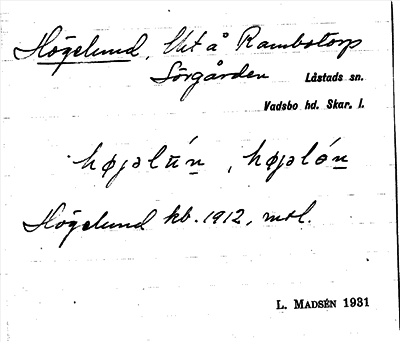 Högelund, Utt å Rambotorp
Sörgården Låstads sn.
Vadsbo hd. Skar. l.
højəlún, højəlón
Högelund kb. 1912, msl.
L. MADSÉN 1931